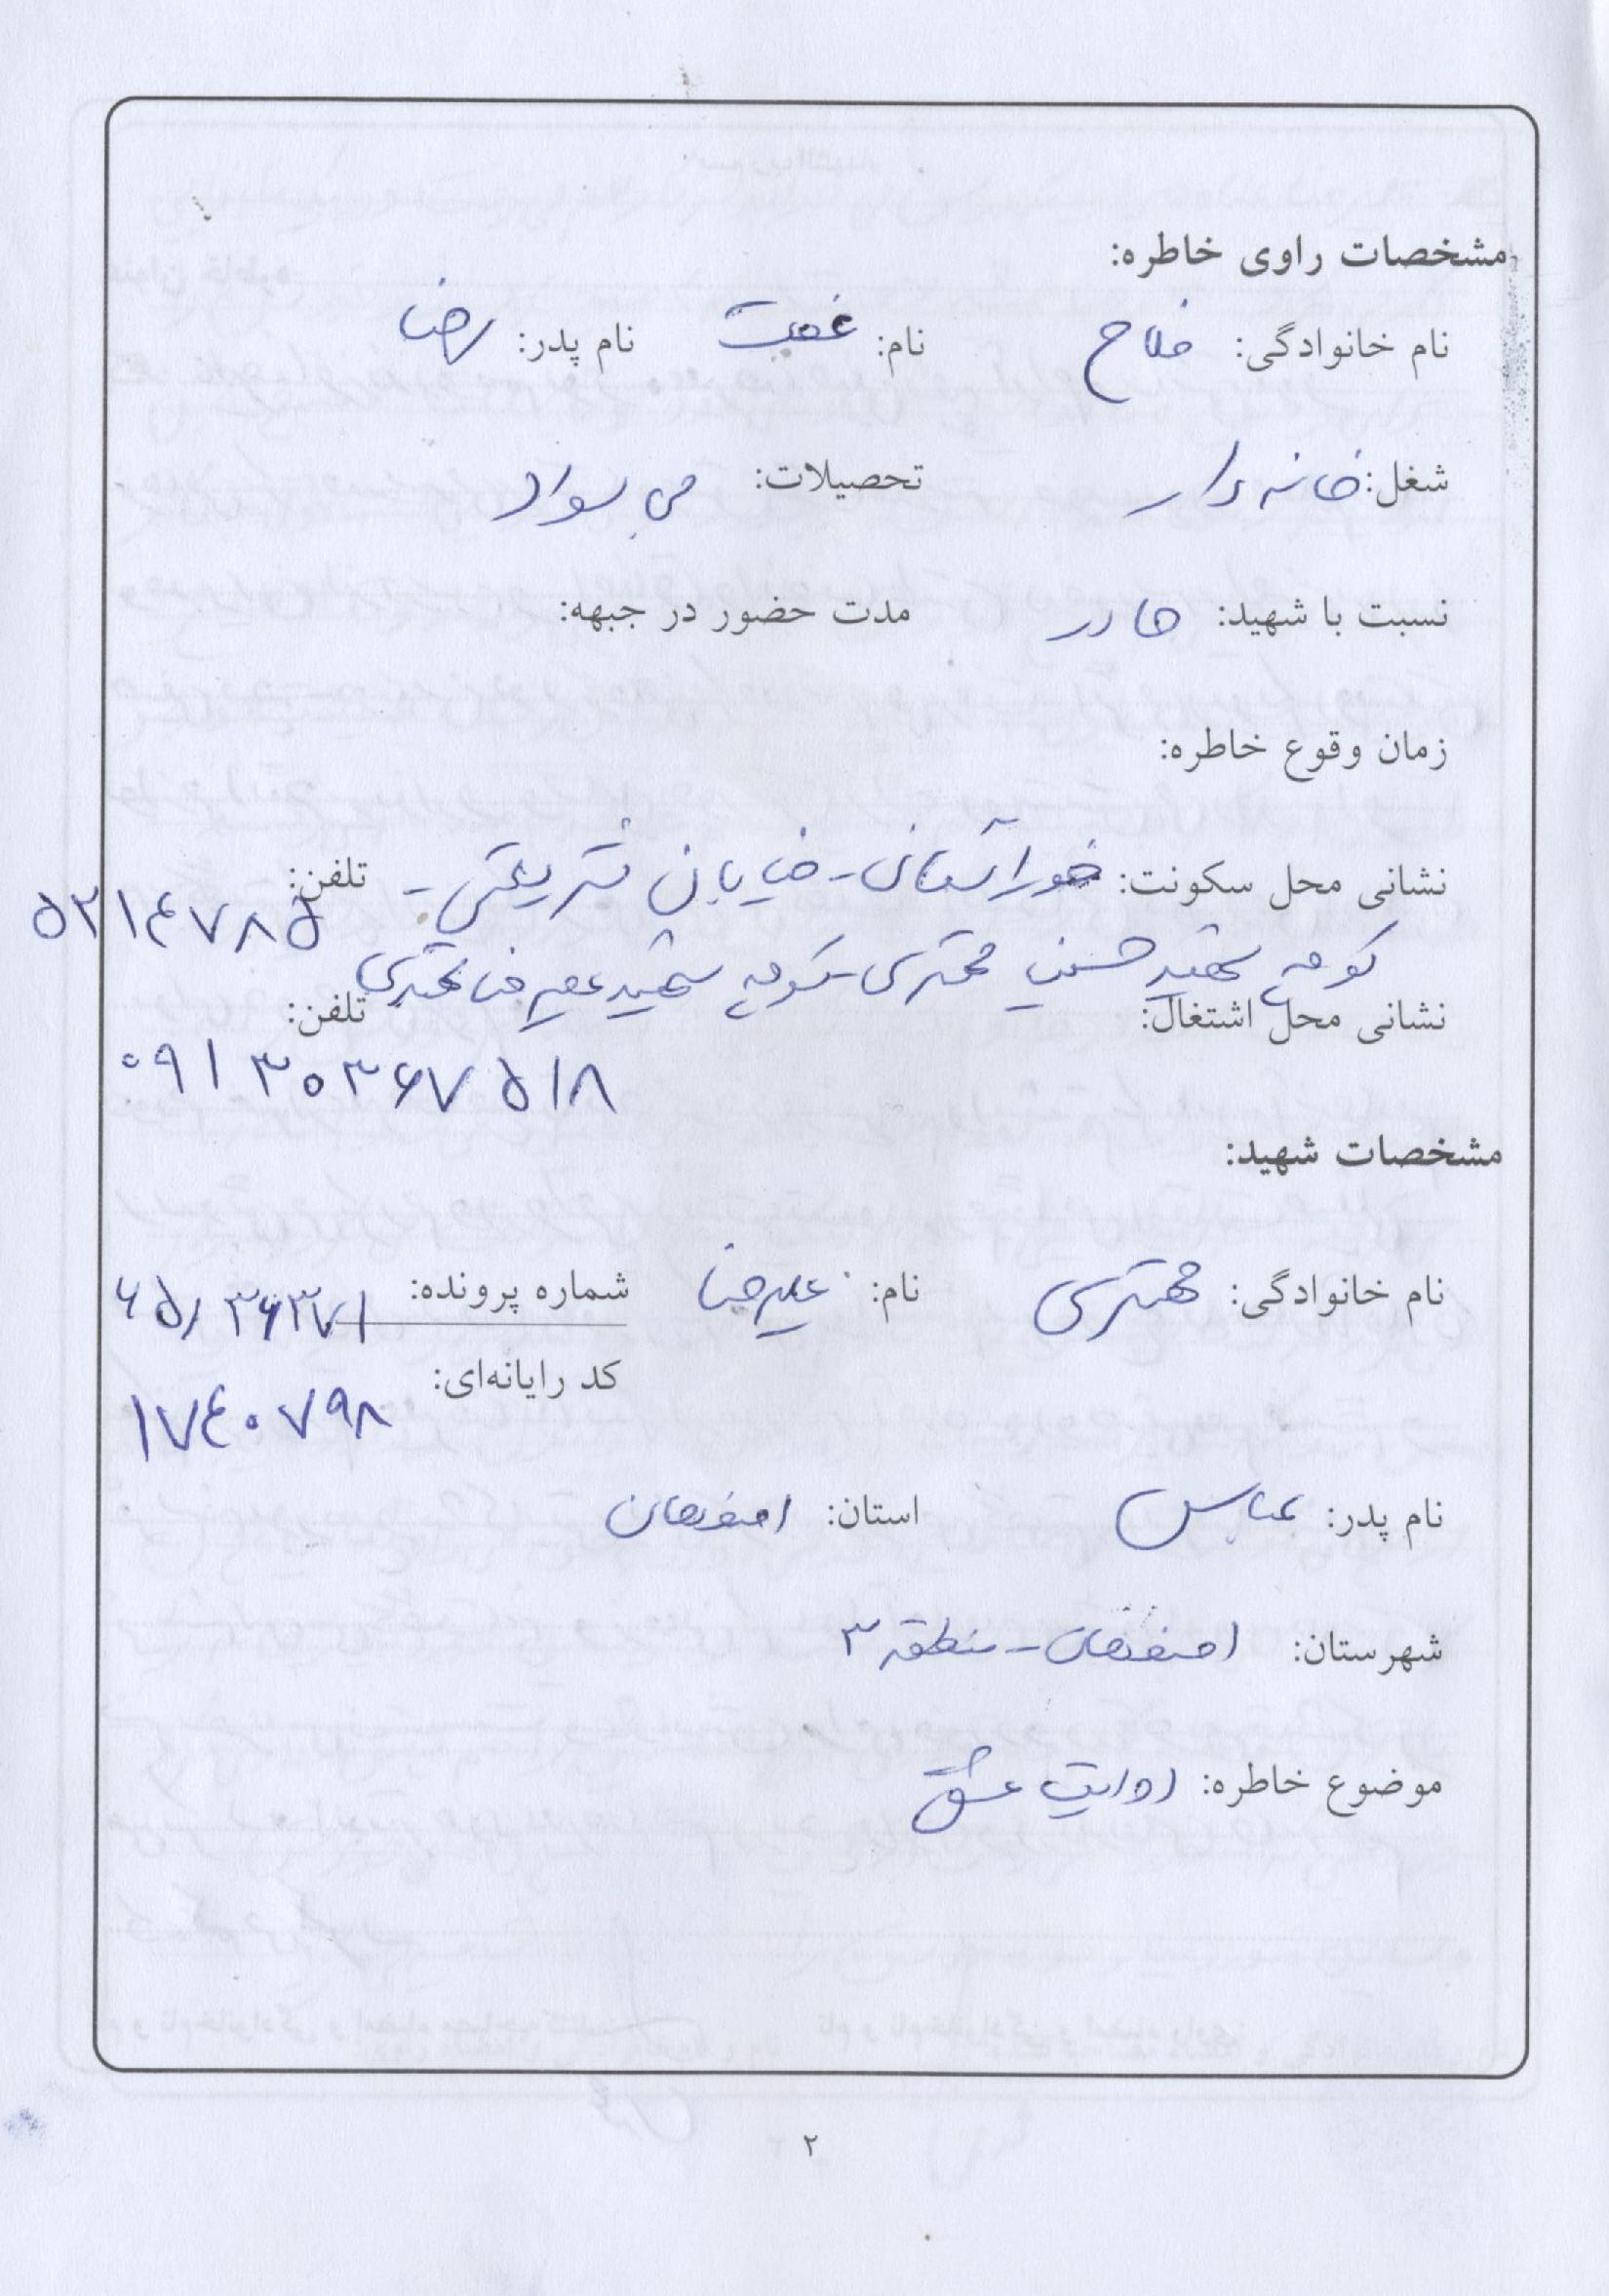 مشخصات راوی خاطره:
نام خانوادگی: فلاح نام: عفت نام پدر: رضا
شغل: خانه دار تحصیلات: بی سواد
نسبت با شهید: مادر مدت حضور در جبهه:
زمان وقوع خاطره:
نشانی محل سکونت: خوراسگان - خیابان شریعتی - تلفن: ۵۲۱۴۷۸۵
کوچه شهید حسین مهتری - کوچه شهید علیرضا مهتری
نشانی محل اشتغال: تلفن:
۰۹۱۳۰۳۶۷۵۱۸
مشخصات شهید:
نام خانوادگی: مهتری نام: علیرضا شماره پرونده: ۶۵/۳۶۳۷۱
کد رایانه‌ای: ۱۷۴۰۷۹۸
نام پدر: عباس استان: اصفهان
شهرستان: اصفهان - منطقه ۳
موضوع خاطره: روایت عشق
۲